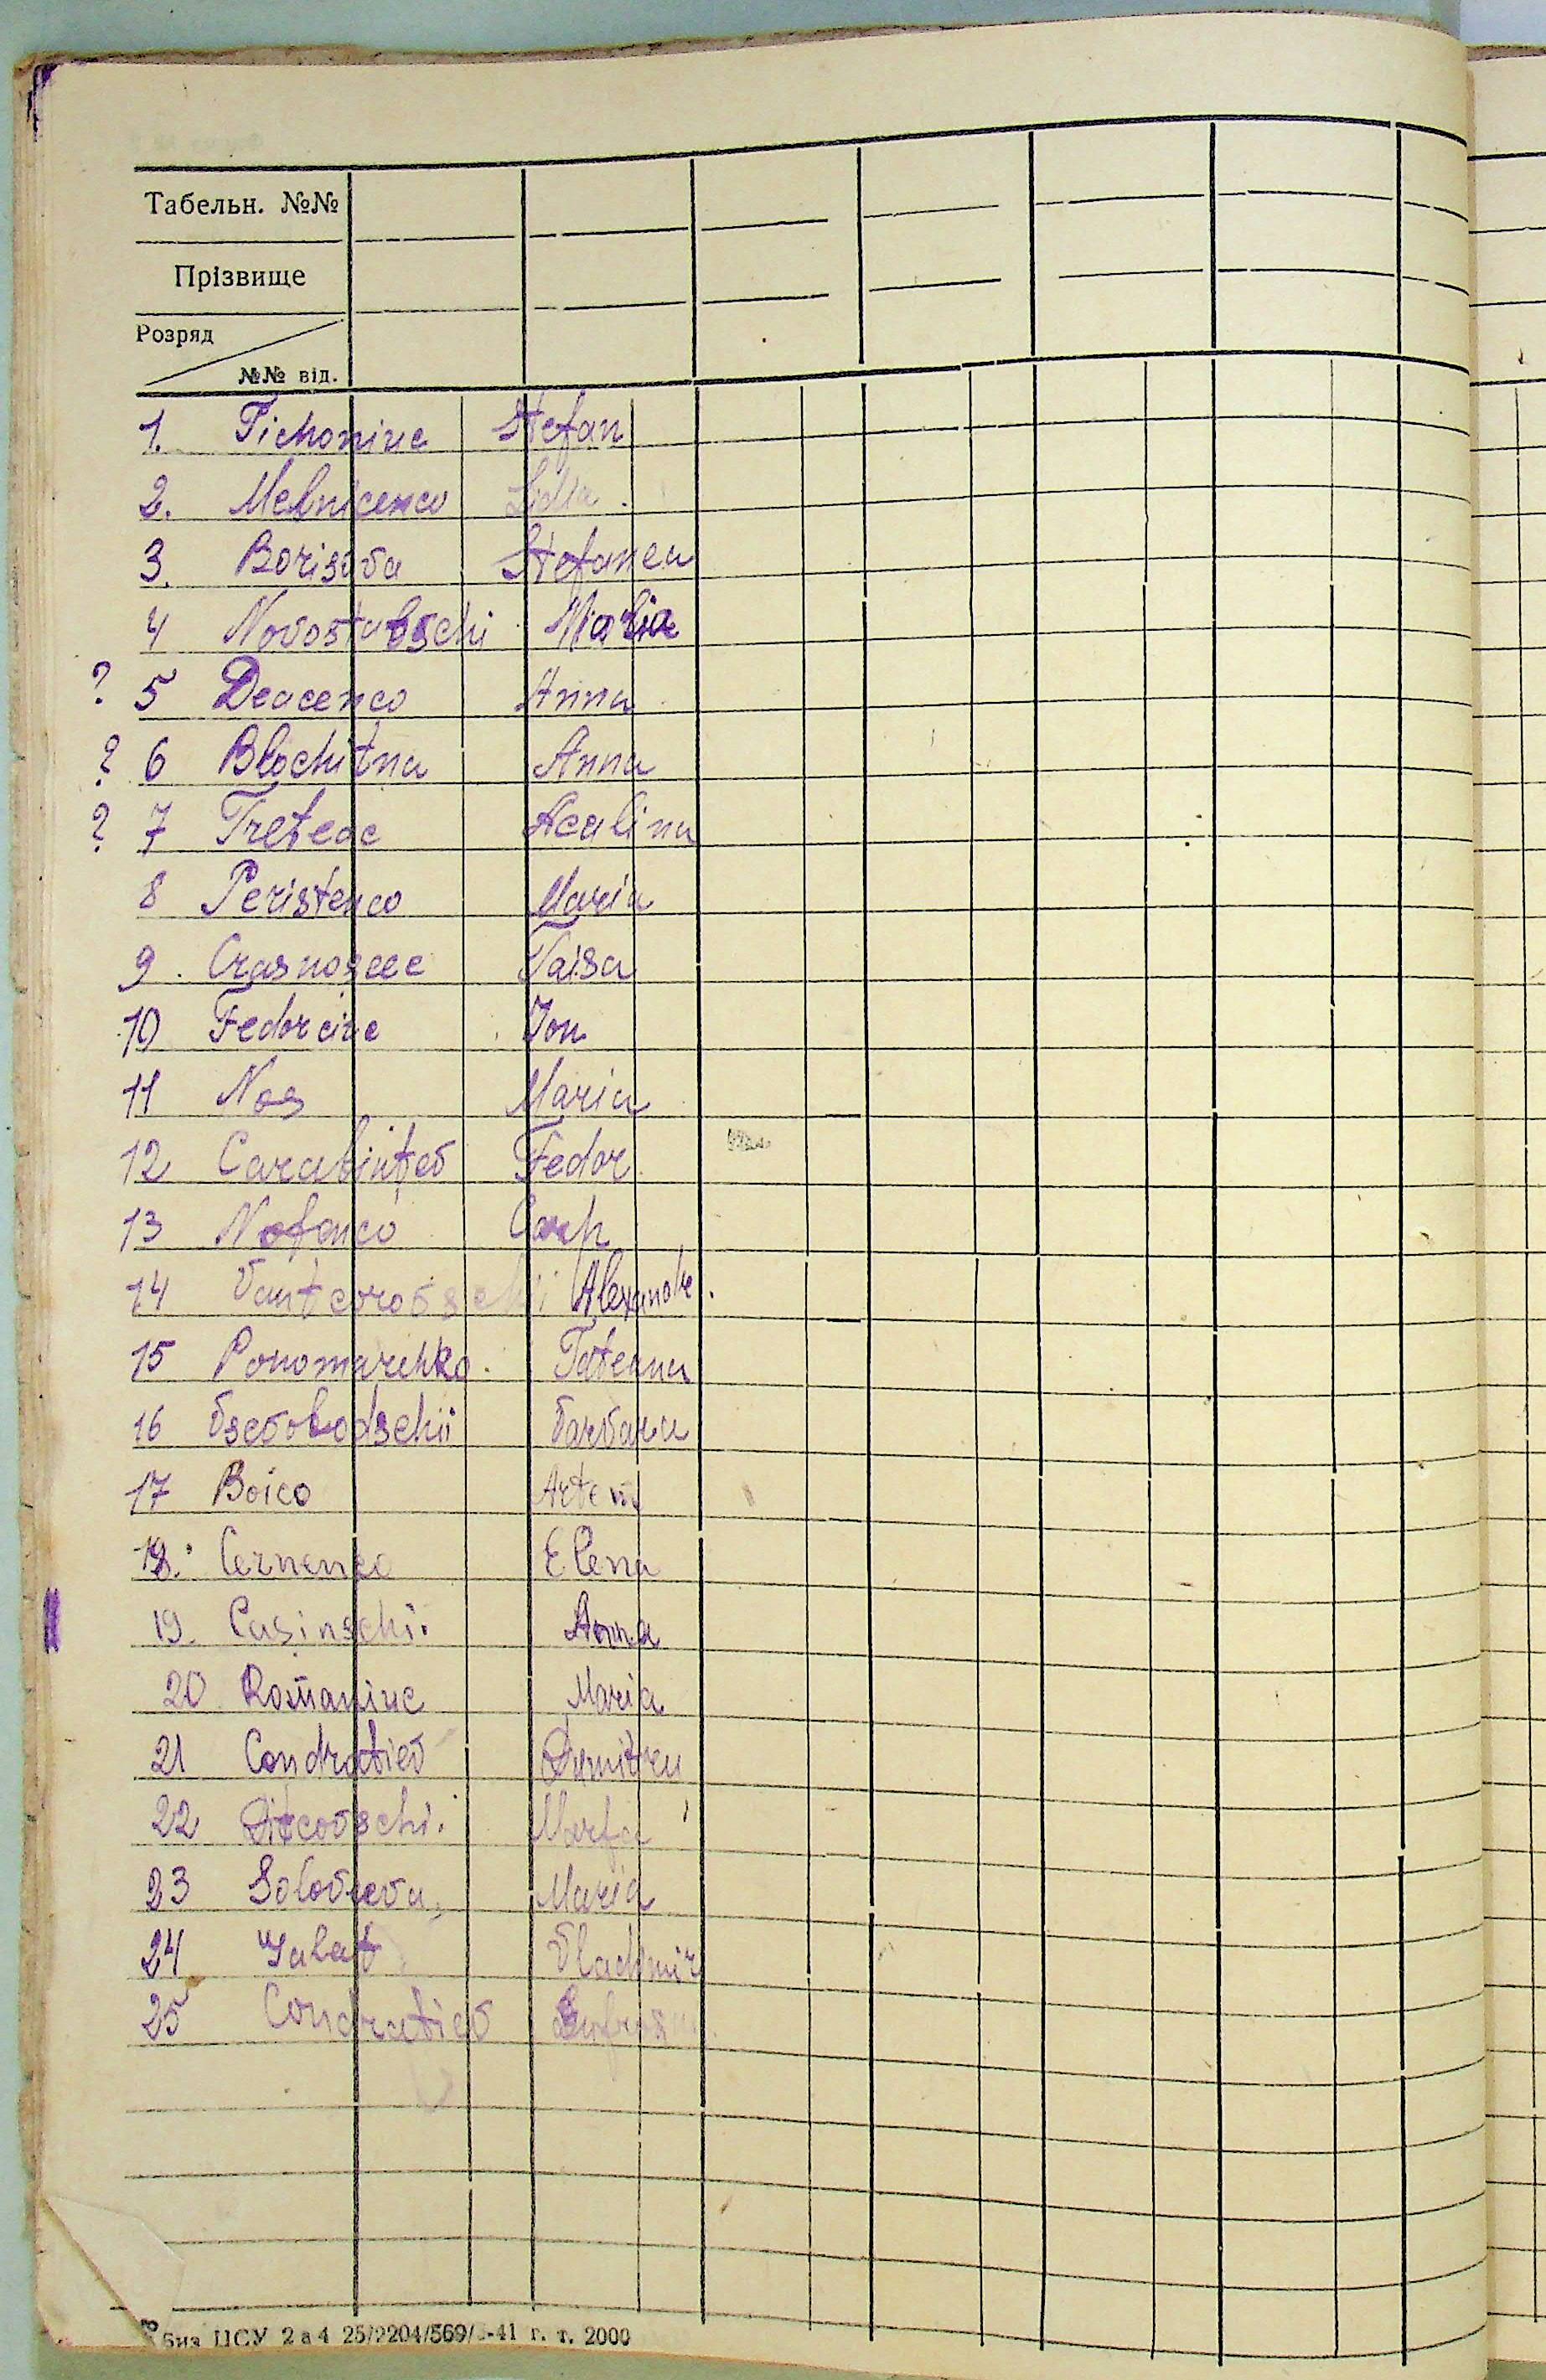 Табельн. №№
Прізвище
Розряд
№№ від.
1. Tichoniuc Stefan
2. Melnicenco Lidia
3. Borisova Stefanea
4 Novostabschi Maria
? 5 Deacenco Anna
? 6 Blochitna Anna
? 7 Treteac Acalina
8 Peristenco Maria
9. Crasnoseec Taisa
10 Fedorciuc Ion
11 Nos Maria
12 Carabințev Fedor
13 Nofenco Carp
14 Alexandr.
15 Ponomarenko. Tateana
16 Vsevolodschii Varvara
17 Boico Artem
18. Cernenco Elena
19. Casinschi. Anna
20 Romaniuc Maria
21 Condratiev Dumitru
22 Marfa
23 Solovieva, Maria
24 Galat Vladimir
25 Condratiev
биз ЦСУ 2 а 4 25/9204/569/ -41 г. т. 2000